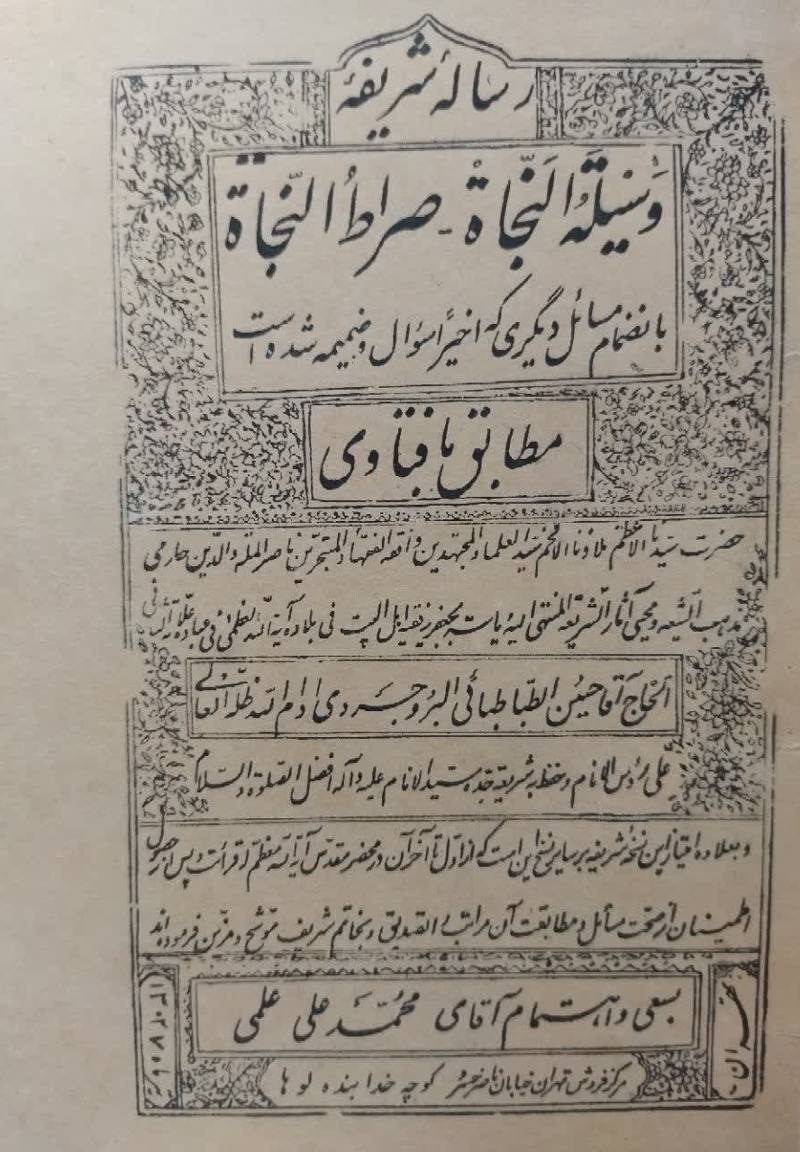 رسالهٔ شریفهٔ
وَسیلَةُ النَّجاةْ - صراطُ النّجاة
بانضمام مسائل دیگری که اخیراً سؤال و ضمیمه شده است
مطابق با فتاوی
حضرت سیدنا الاعظم ملاذنا الافخم سید العلماء المجتهدین و افقه الفقهاء المتبحرین ناصر المله والدین حامی
مذهب الشیعه و محیی آثار الشریعه المنتهی الیه ریاسة الجعفریه فقیه اهل البیت فی بلاده آیة الله العظمی فی عباده علامة
الحاج آقا حسین الطباطبائی البروجردی ادام الله ظله العالی
علی رؤس الانام و حفظ به شریعة جده سید الانام علیه و آله افضل الصلوة والسلام
و بعلاوه امتیاز این نسخه شریفه بر سایر نسخ این است که از اول تا آخر آن در محضر مقدس آیة الله معظم قرائت و پس از حصول
اطمینان از صحت مسائل و مطابقت آن مراتب را تصدیق و بخاتم شریف موشح و مزین فرموده اند
بسعی و اهتمام آقای محمّد علی علمی
مرکز فروش تهران خیابان ناصر خسرو کوچه خدا بنده لوها
تهران